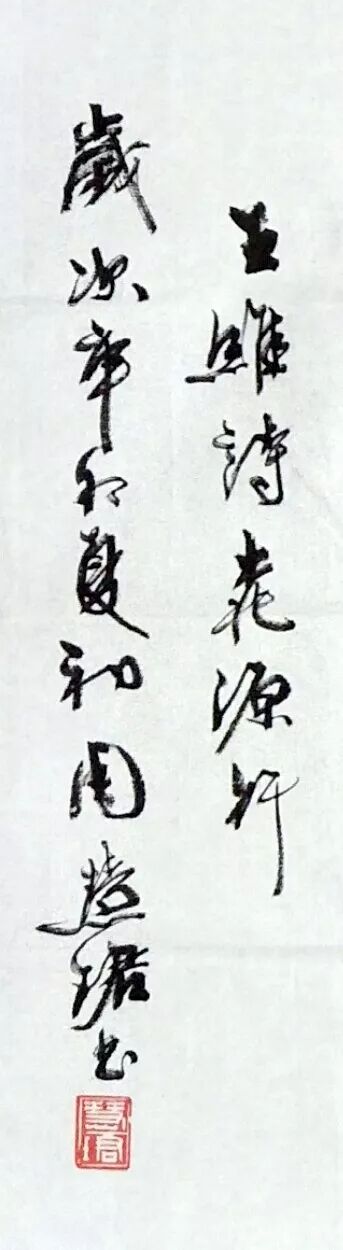 王維詩桃源行
歲次辛卯夏初周慧珺書